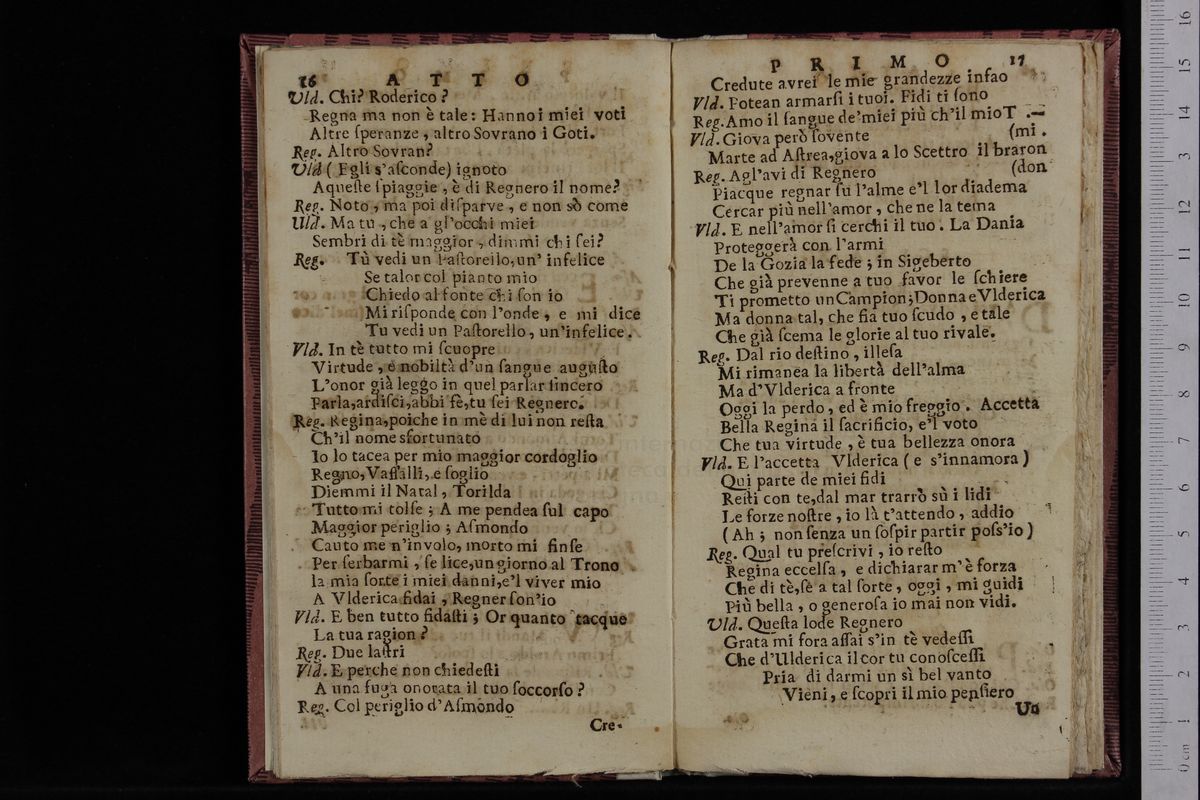 16 ATTO
Vld. Chi? Roderico?
Regna ma non è tale: Hanno i miei voti
Altre ſperanze, altro Sovrano i Goti.
Reg. Altro Sovran?
Vld (Egli s'aſconde) ignoto
Aqueſte ſpiaggie, è di Regnero il nome?
Reg. Noto, ma poi diſparve, e non sò come
Uld. Ma tu, che a gl'occhi miei
Sembri di tè maggior, dimmi chi ſei?
Reg. Tù vedi un Paſtorello, un' infelice
Se talor col pianto mio
Chiedo al fonte chi ſon io
Mi riſponde con l'onde, e mi dice
Tu vedi un Paſtorello, un'infelice.
Vld. In tè tutto mi ſcuopre
Virtude, e nobiltà d'un ſangue auguſto
L'onor già leggo in quel parlar ſincero
Parla, ardiſci, abbi fè, tu ſei Regnero.
Reg. Regina, poiche in mè di lui non reſta
Ch'il nome sfortunato
Io lo tacea per mio maggior cordoglio
Regno, Vaſſalli, e ſoglio
Diemmi il Natal, Torilda
Tutto mi tolſe; A me pendea ſul capo
Maggior periglio; Aſmondo
Cauto me n'involo, morto mi finſe
Per ſerbarmi, ſe lice, un giorno al Trono
la mia ſorte i miei danni, e'l viver mio
A Vlderica fidai, Regner ſon'io
Vld. E ben tutto fidaſti; Or quanto tacque
La tua ragion?
Reg. Due laſtri
Vld. E perche non chiedeſti
A una fuga onorata il tuo ſoccorſo?
Reg. Col periglio d'Aſmondo
Cre-
PRIMO 17
Credute avrei le mie grandezze infao
Vld. Potean armarſi i tuoi. Fidi ti ſono
Reg. Amo il ſangue de'miei più ch'il mioT .—
Vld. Giova però ſovente (mi.
Marte ad Aſtrea, giova a lo Scettro il braron
Reg. Agl'avi di Regnero (don
Piacque regnar ſu l'alme e'l lor diadema
Cercar più nell'amor, che ne la tema
Vld. E nell'amor ſi cerchi il tuo. La Dania
Proteggerà con l'armi
De la Gozia la fede; in Sigeberto
Che già prevenne a tuo favor le ſchiere
Ti prometto un Campion; Donna e Vlderica
Ma donna tal, che ſia tuo ſcudo, e tale
Che già ſcema le glorie al tuo rivale.
Reg. Dal rio deſtino, illeſa
Mi rimanea la libertà dell'alma
Ma d'Vlderica a fronte
Oggi la perdo, ed è mio freggio. Accetta
Bella Regina il ſacrificio, e'l voto
Che tua virtude, è tua bellezza onora
Vld. E l'accetta Vlderica (e s'innamora)
Qui parte de miei fidi
Reſti con te, dal mar trarrò sù i lidi
Le forze noſtre, io là t'attendo, addio
(Ah; non ſenza un ſoſpir partir poſs'io)
Reg. Qual tu preſcrivi, io reſto
Regina eccelſa, e dichiarar m'è forza
Che di tè, ſè a tal ſorte, oggi, mi guidi
Più bella, o generoſa io mai non vidi.
Uld. Queſta lode Regnero
Grata mi fora aſſai s'in tè vedeſſi
Che d'Ulderica il cor tu conoſceſſi
Pria di darmi un sì bel vanto
Vieni, e ſcopri il mio penſiero
Un